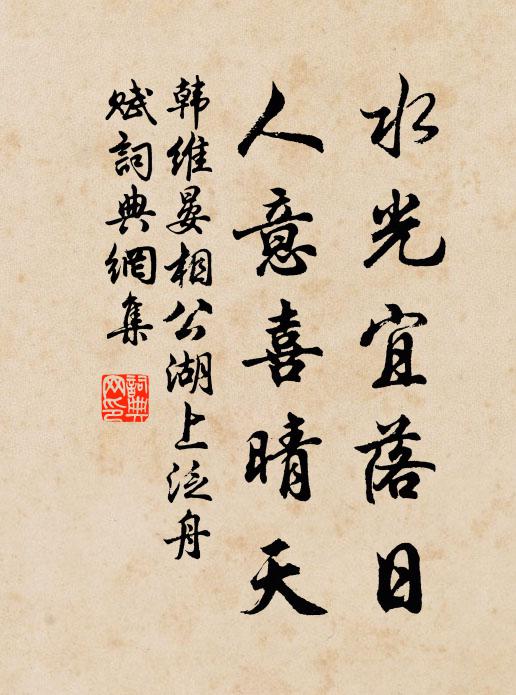 水光宜落日
人意喜晴天
韩维晏相公湖上泛舟
赋词典网集
词典网印